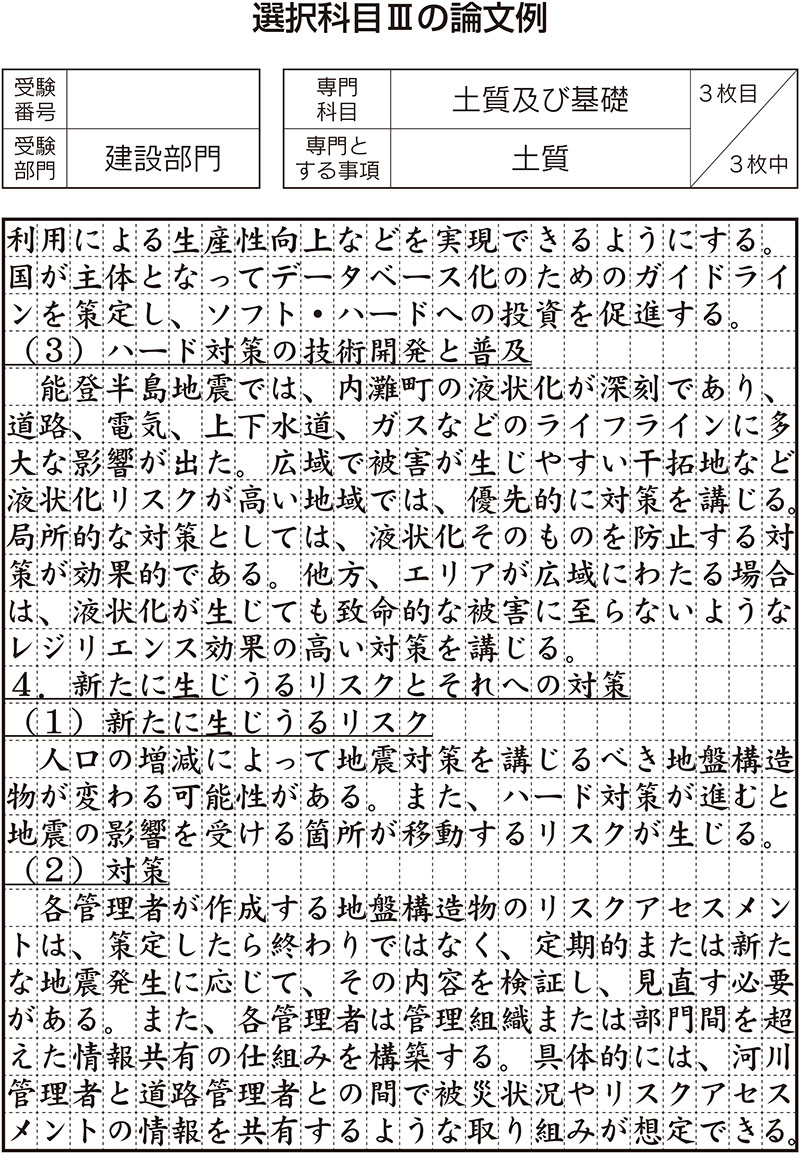 選択科目Ⅲの論文例
受験番号
受験部門 建設部門
専門科目 土質及び基礎
専門とする事項 土質
3枚目
3枚中
利用による生産性向上などを実現できるようにする。
国が主体となってデータベース化のためのガイドライ
ンを策定し、ソフト・ハードへの投資を促進する。
（3）ハード対策の技術開発と普及
能登半島地震では、内灘町の液状化が深刻であり、
道路、電気、上下水道、ガスなどのライフラインに多
大な影響が出た。広域で被害が生じやすい干拓地など
液状化リスクが高い地域では、優先的に対策を講じる。
局所的な対策としては、液状化そのものを防止する対
策が効果的である。他方、エリアが広域にわたる場合
は、液状化が生じても致命的な被害に至らないような
レジリエンス効果の高い対策を講じる。
4．新たに生じうるリスクとそれへの対策
（1）新たに生じうるリスク
人口の増減によって地震対策を講じるべき地盤構造
物が変わる可能性がある。また、ハード対策が進むと
地震の影響を受ける箇所が移動するリスクが生じる。
（2）対策
各管理者が作成する地盤構造物のリスクアセスメン
トは、策定したら終わりではなく、定期的または新た
な地震発生に応じて、その内容を検証し、見直す必要
がある。また、各管理者は管理組織または部門間を超
えた情報共有の仕組みを構築する。具体的には、河川
管理者と道路管理者との間で被災状況やリスクアセス
メントの情報を共有するような取り組みが想定できる。